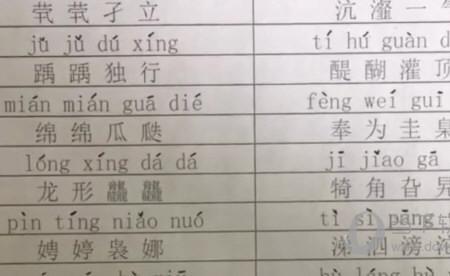 茕茕孑立 沆瀣一
jǔ jǔ dú xíng tí hú guàn d
踽踽独行 醍醐灌顶
mián mián guā dié fèng wéi guī
绵绵瓜瓞 奉为圭臬
lóng xíng dá dá jī jiǎo gā
龙形龘龘 犄角旮旯
pìn tíng niǎo nuó tì sì pāng
娉婷袅娜 涕泗滂沱